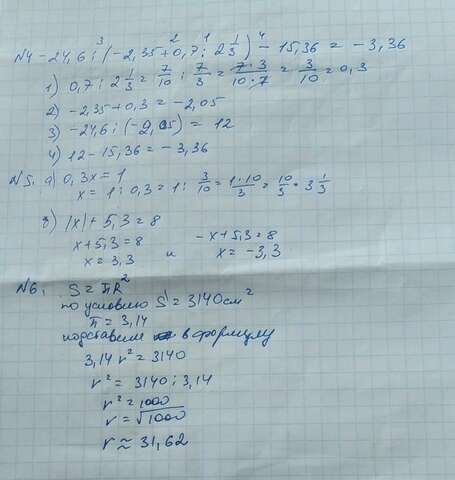 №4 -24,6 : (-2,35 + 0,7 : 2 1/3) - 15,36 = -3,36
3 2 1 4
1) 0,7 : 2 1/3 = 7/10 : 7/3 = 7·3/10·7 = 3/10 = 0,3
2) -2,35 + 0,3 = -2,05
3) -24,6 : (-2,05) = 12
4) 12 - 15,36 = -3,36
№5. а) 0,3x = 1
x = 1 : 0,3 = 1 : 3/10 = 1·10/3 = 10/3 = 3 1/3
в) |x| + 5,3 = 8
x + 5,3 = 8 и -x + 5,3 = 8
x = 3,3 x = -3,3
№6. S = πR²
по условию S = 3140 см²
π = 3,14
подставим в формулу
3,14 r² = 3140
r² = 3140 : 3,14
r² = 1000
r = √1000
r ≈ 31,62